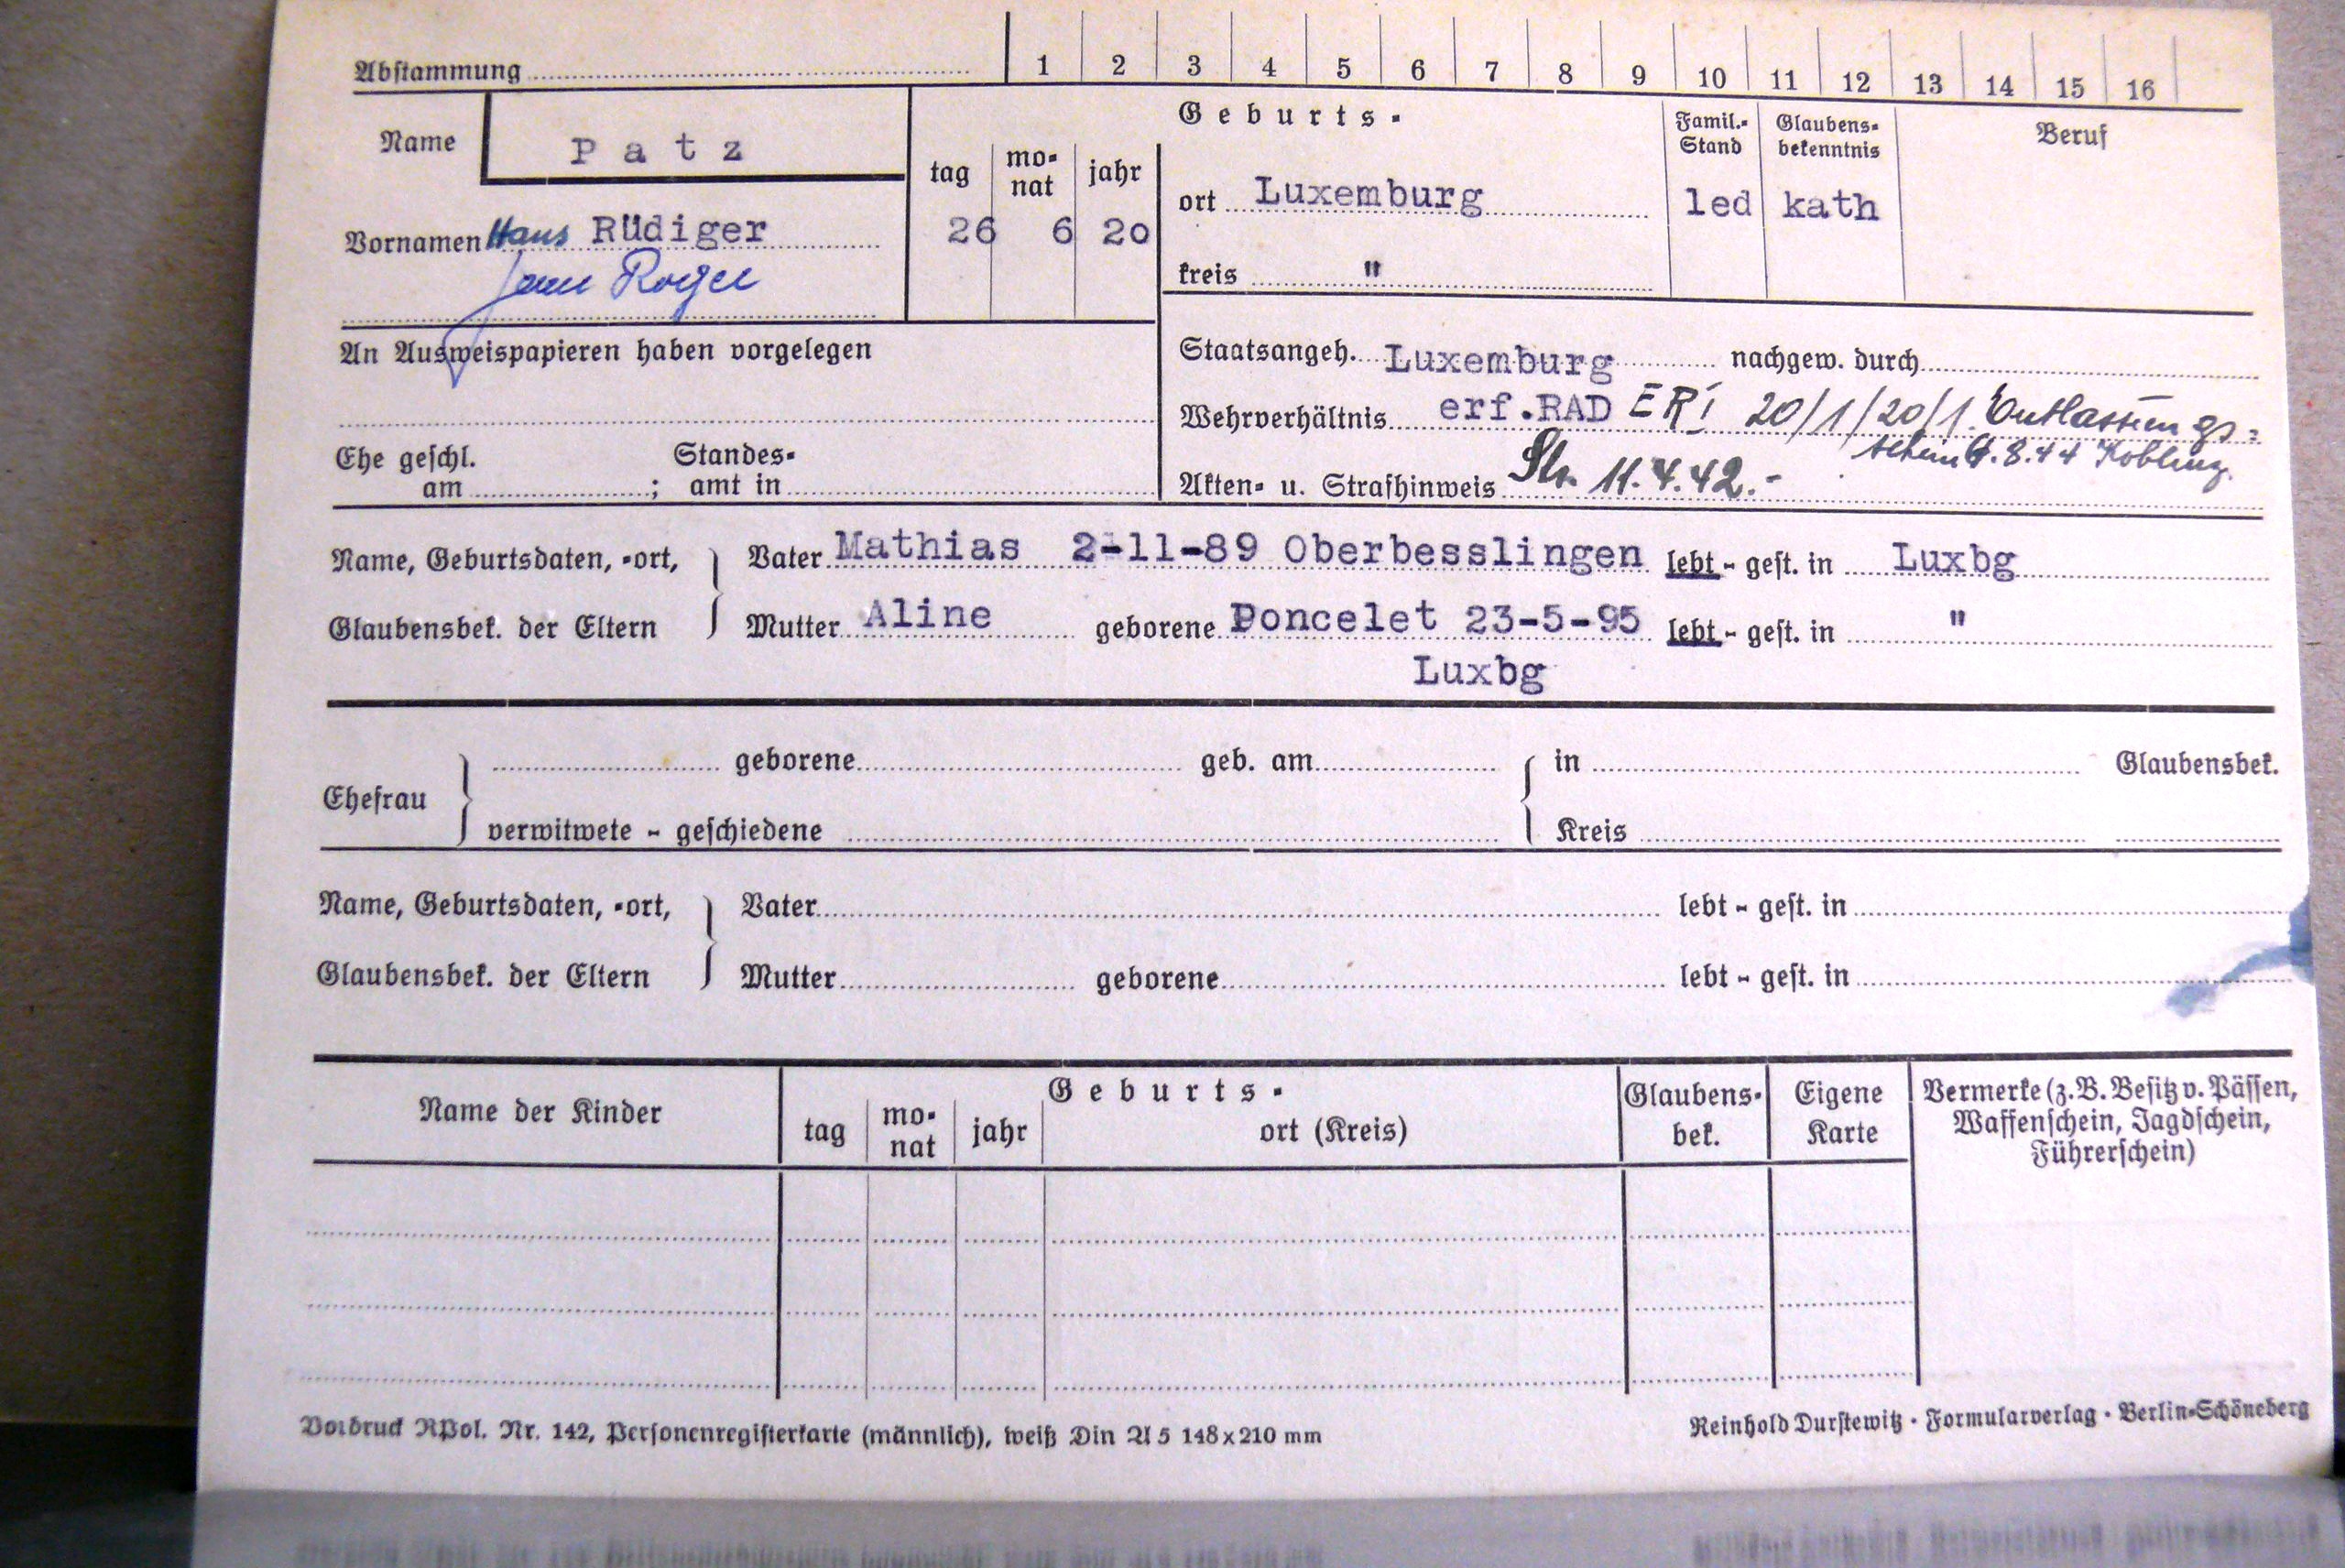 Abstammung 1 2 3 4 5 6 7 8 9 10 11 12 13 14 15 16
Name Patz
Geburts-
tag monat jahr
Famil.-Stand Glaubens-bekenntnis Beruf
ort Luxemburg led kath
Vornamen Hans Rüdiger 26 6 20
Jean Roger
kreis "
An Ausweispapieren haben vorgelegen
Staatsangeh. Luxemburg nachgew. durch
Wehrverhältnis erf.RAD ERI 20/1/20/1. Entlassungs-
4.8.44 Koblenz.
Ehe geschl. am ; Standes-amt in
Akten- u. Strafhinweis 11.4.42.-
Name, Geburtsdaten, -ort, Vater Mathias 2-11-89 Oberbesslingen lebt - gest. in Luxbg
Glaubensbek. der Eltern Mutter Aline geborene Poncelet 23-5-95 lebt - gest. in "
Luxbg
Ehefrau geborene geb. am in Glaubensbek.
verwitwete - geschiedene Kreis
Name, Geburtsdaten, -ort, Vater lebt - gest. in
Glaubensbek. der Eltern Mutter geborene lebt - gest. in
Name der Kinder
Geburts-
tag mo-nat jahr ort (Kreis)
Glaubens-bek.
Eigene Karte
Vermerke (z.B. Besitz v. Pässen,
Waffenschein, Jagdschein,
Führerschein)
Vordruck RPol. Nr. 142, Personenregisterkarte (männlich), weiß Din A 5 148x210 mm
Reinhold Durstewitz · Formularverlag · Berlin-Schöneberg